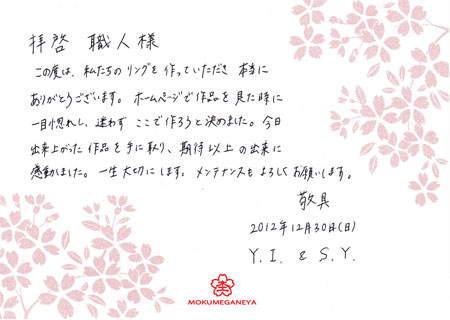 拝啓 職人様
この度は、私たちのリングを作っていただき 本当に
ありがとうございます。ホームページで作品を見た時に
一目惚れし、迷わず ここで作ろうと決めました。今日
出来上がった作品を手に取り、期待以上の出来に
感動しました。一生大切にします。メンテナンスもよろしくお願いします。
敬具
2012年12月30日(日)
Y.I. & S.Y.
MOKUMEGANEYA